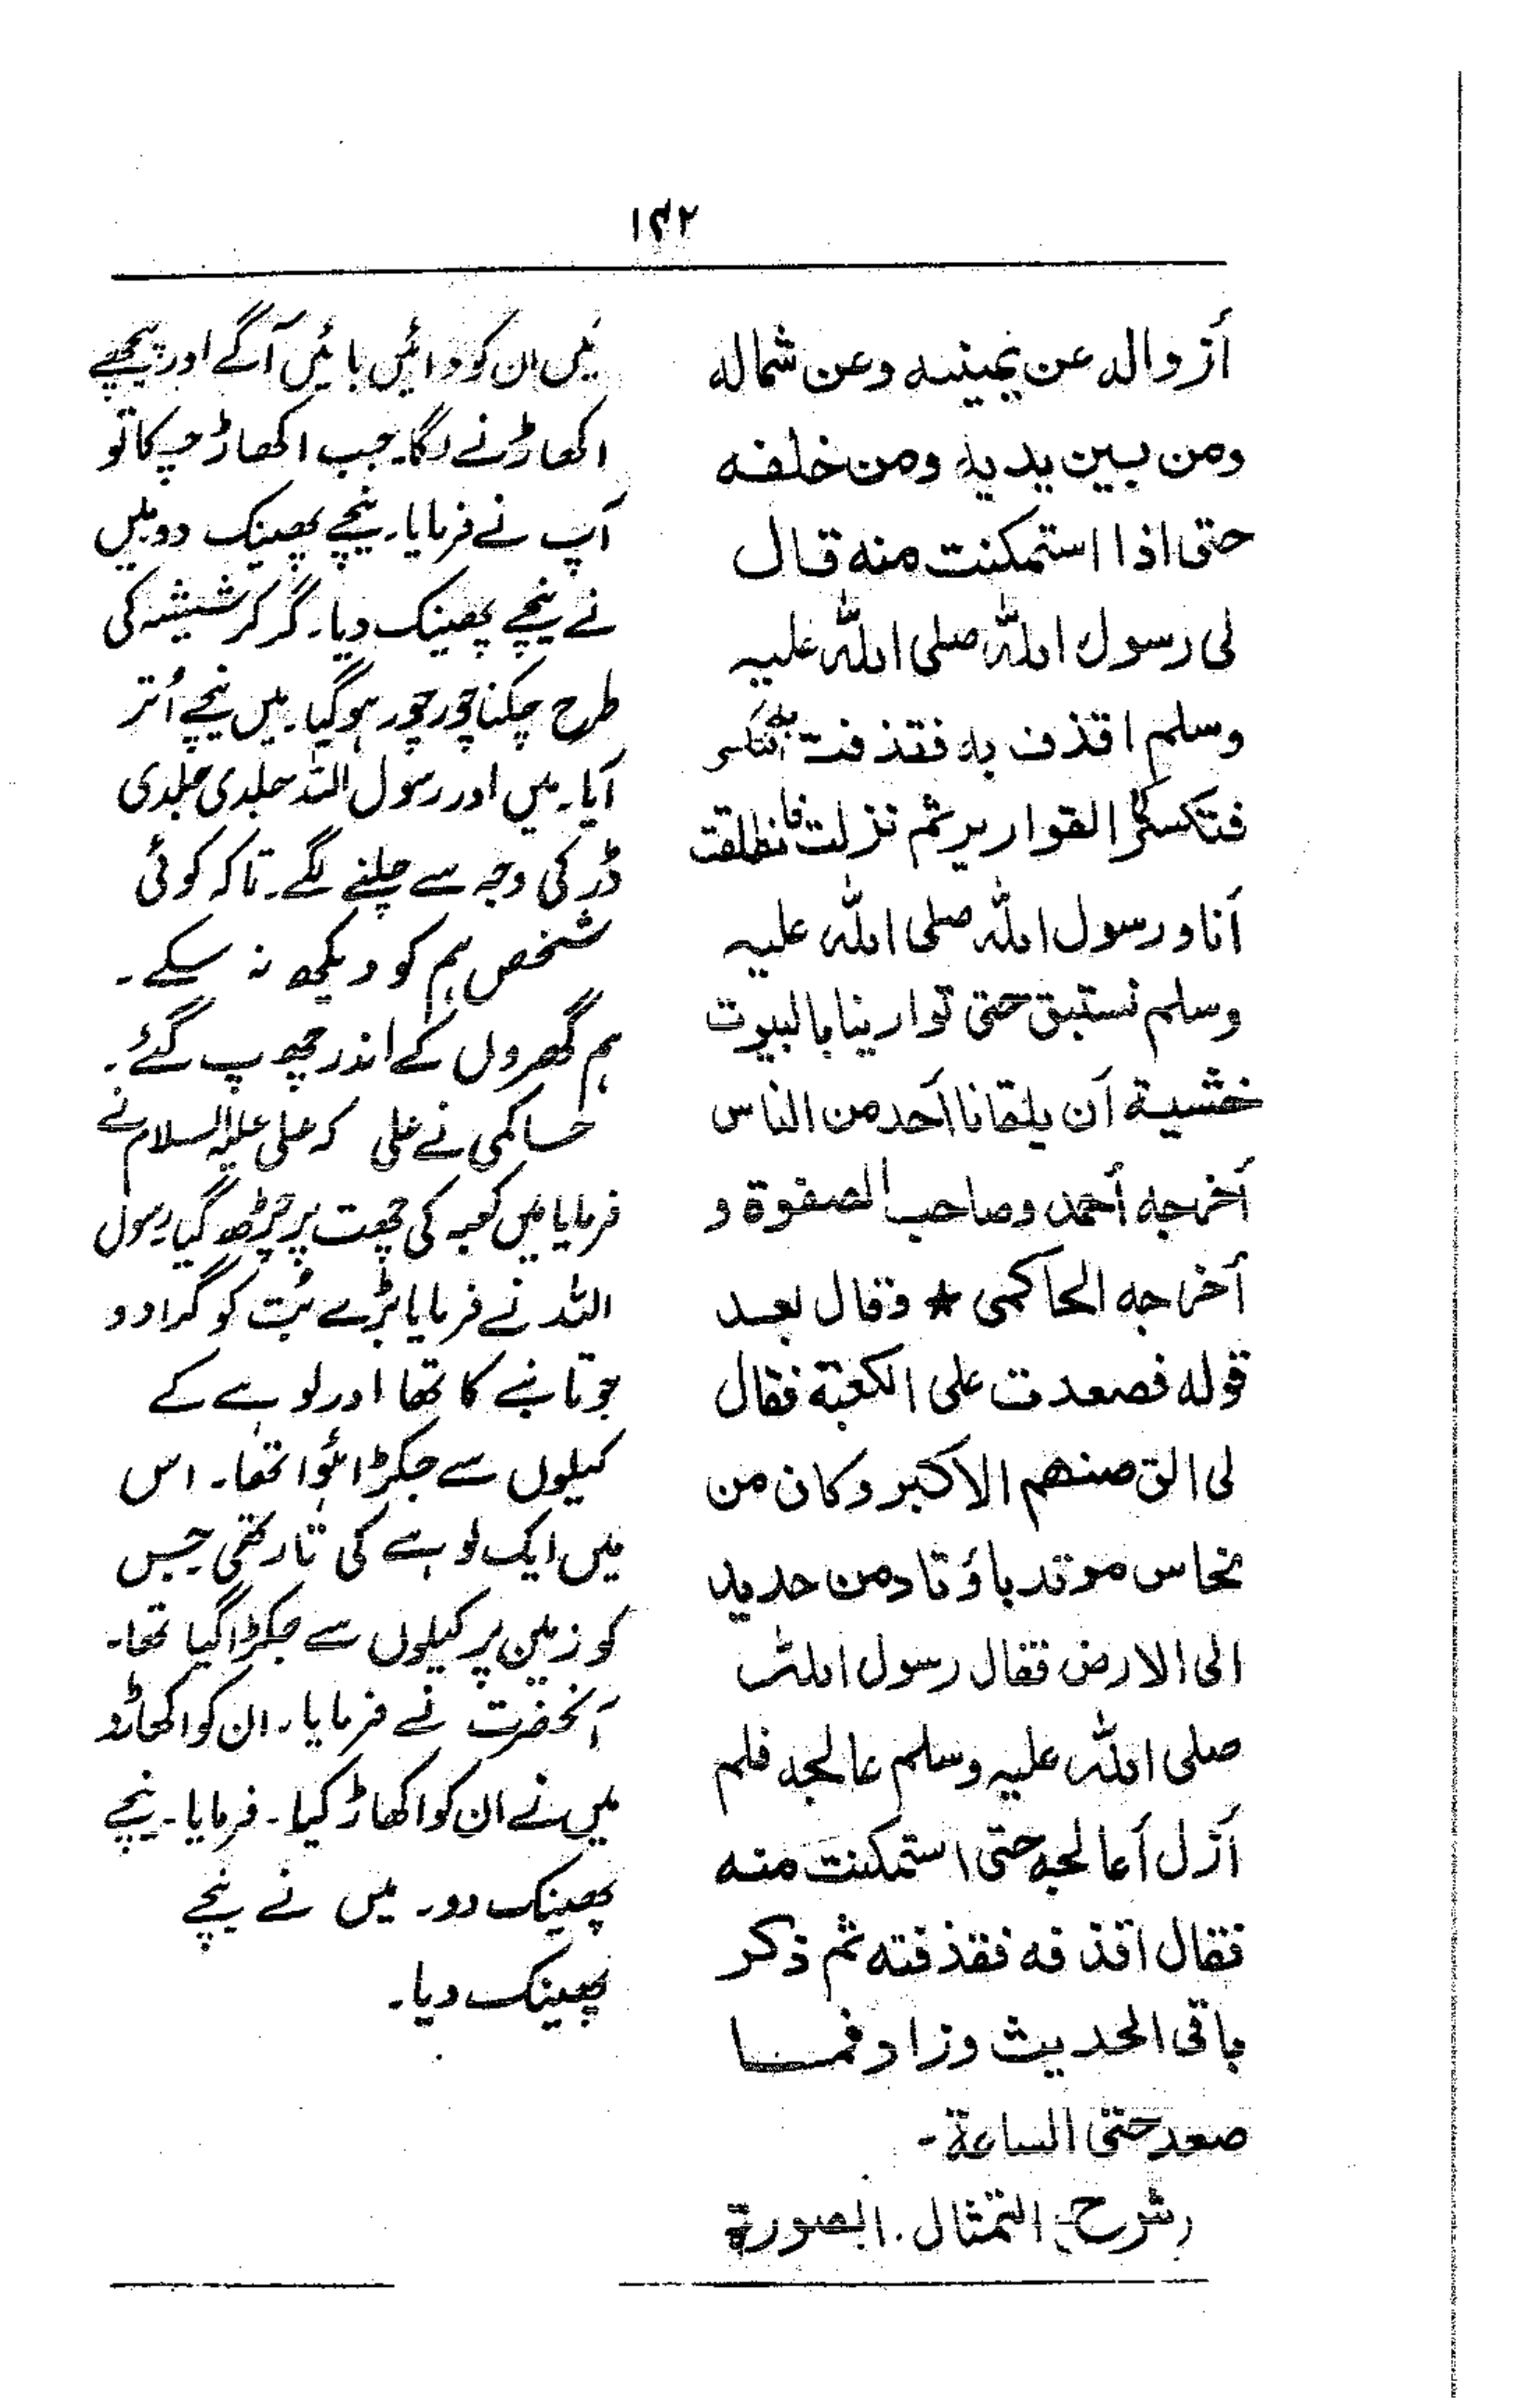 ۱۹۲
أزواله عن يمينه وعن شماله
ومن بين يديه ومن خلفه
حتى اذا استمكنت منه قال
لى رسول الله صلى الله عليه
وسلم اقذف به فقذفت به
فتكسر كما القوارير ثم نزلت فانطلقت
أنا ورسول الله صلى الله عليه
وسلم نستبق حتى توارينا بالبيوت
خشية أن يلقانا أحد من الناس
أخرجه أحمد وصاحب الصفوة و
أخرجه الحاكمى * وقال بعد
قوله فصعدت على الكعبة فقال
لى الق صنمهم الاكبر وكان من
نحاس موتد باؤتاد من حديد
الى الارض فقال رسول الله
صلى الله عليه وسلم عالجه فلم
أزل أعالجه حتى استمكنت منه
فقال اقذفه فقذفته ثم ذكر
باقى الحديث وزاد فمــا
صعد حتى الساعة۔
(شرح) التمثال. الصورة
میں ان کو دائیں بائیں آگے اور پیچھے
اکھاڑنے لگا۔ جب اکھاڑ چکا تو
آپ نے فرمایا۔ نیچے پھینک دو میں
نے نیچے پھینک دیا۔ گر کر شیشہ کی
طرح چکنا چور چور ہو گیا۔ میں نیچے اُتر
آیا۔ میں اور رسول اللہ جلدی جلدی
ڈر کی وجہ سے چلنے لگے۔ تاکہ کوئی
شخص ہم کو دیکھ نہ سکے۔
ہم گھروں کے اندر چھپ گئے۔
حساکمی نے علی کہ علی علیہ السلام نے
فرمایا میں کعبہ کی چھت پر چڑھ گیا رسول
اللہ نے فرمایا بڑے بُت کو گرا دو
جو تانبے کا تھا اور لوہے کے
کیلوں سے جکڑا ہُوا تھا۔ اس
میں ایک لوہے کی تار تھی جس
کو زمین پر کیلوں سے جکڑا گیا تھا۔
آنحضرت نے فرمایا۔ ان کو اکھاڑو
میں نے ان کو اکھاڑ کیا۔ فرمایا۔ نیچے
پھینک دو۔ میں نے نیچے
پھینک دیا۔